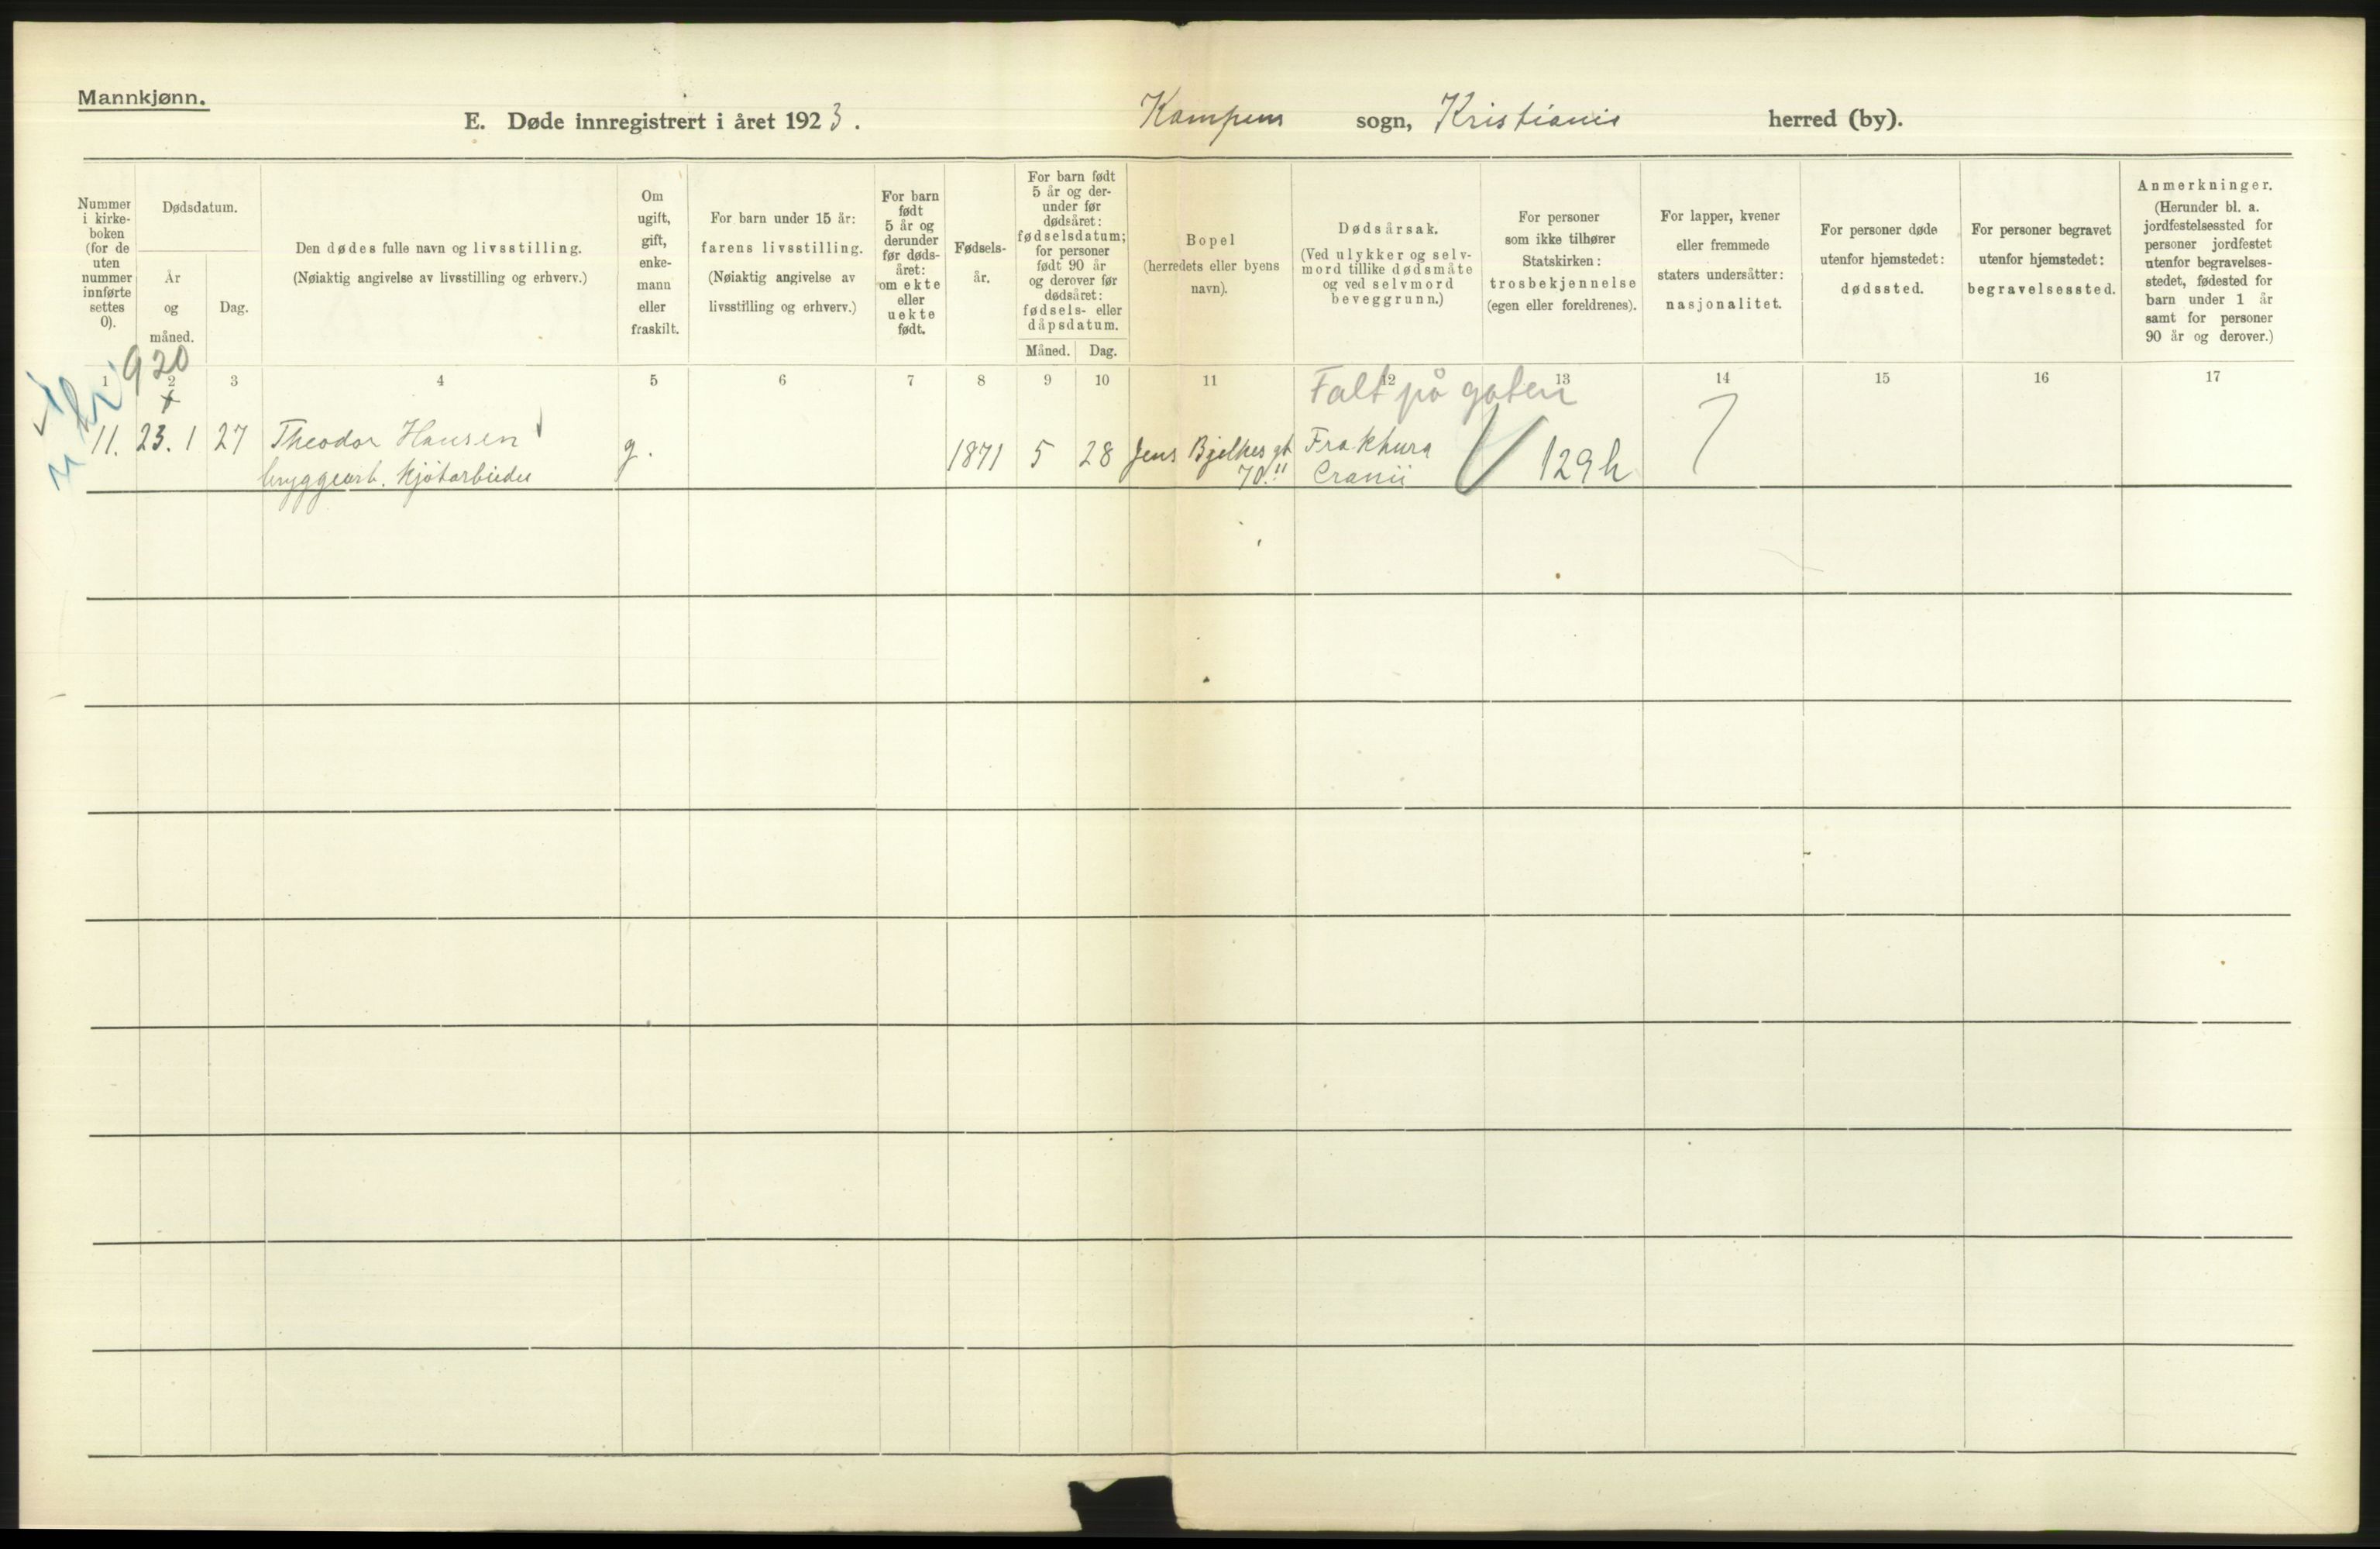 Mannkjønn.
E. Døde innregistrert i året 1923. Kampens sogn, Kristiania herred (by).
Nummer
i kirke-
boken
(for de
uten
nummer
innførte
settes
0).
Dødsdatum.
År
og
måned.
Dag.
Den dødes fulle navn og livsstilling.
(Nøiaktig angivelse av livsstilling og erhverv.)
Om
ugift,
gift,
enke-
mann
eller
fraskilt.
For barn under 15 år:
farens livsstilling.
(Nøiaktig angivelse av
livsstilling og erhverv.)
For barn
født
5 år og
derunder
før døds-
året:
om ekte
eller
uekte
født.
Fødsels-
år.
For barn født
5 år og der-
under før
dødsåret:
fødselsdatum;
for personer
født 90 år
og derover før
dødsåret:
fødsels- eller
dåpsdatum.
Måned. Dag.
Bopel
(herredets eller byens
navn).
Dødsårsak.
(Ved ulykker og selv-
mord tillike dødsmåte
og ved selvmord
beveggrunn.)
For personer
som ikke tilhører
Statskirken:
trosbekjennelse
(egen eller foreldrenes).
For lapper, kvener
eller fremmede
staters undersåtter:
nasjonalitet.
For personer døde
utenfor hjemstedet:
dødssted.
For personer begravet
utenfor hjemstedet:
begravelsessted.
Anmerkninger.
(Herunder bl. a.
jordfestelsessted for
personer jordfestet
utenfor begravelses-
stedet, fødested for
barn under 1 år
samt for personer
90 år og derover.)
920
1 2 3 4 5 6 7 8 9 10 11 12 13 14 15 16 17
Falt på gaten
11. 23. 1 27 Theodor Hansen g. 1871 5 28 Jens Bjelkes gt Fraktura 129h
bryggearb. Kjøtarbeider 70." Cranii